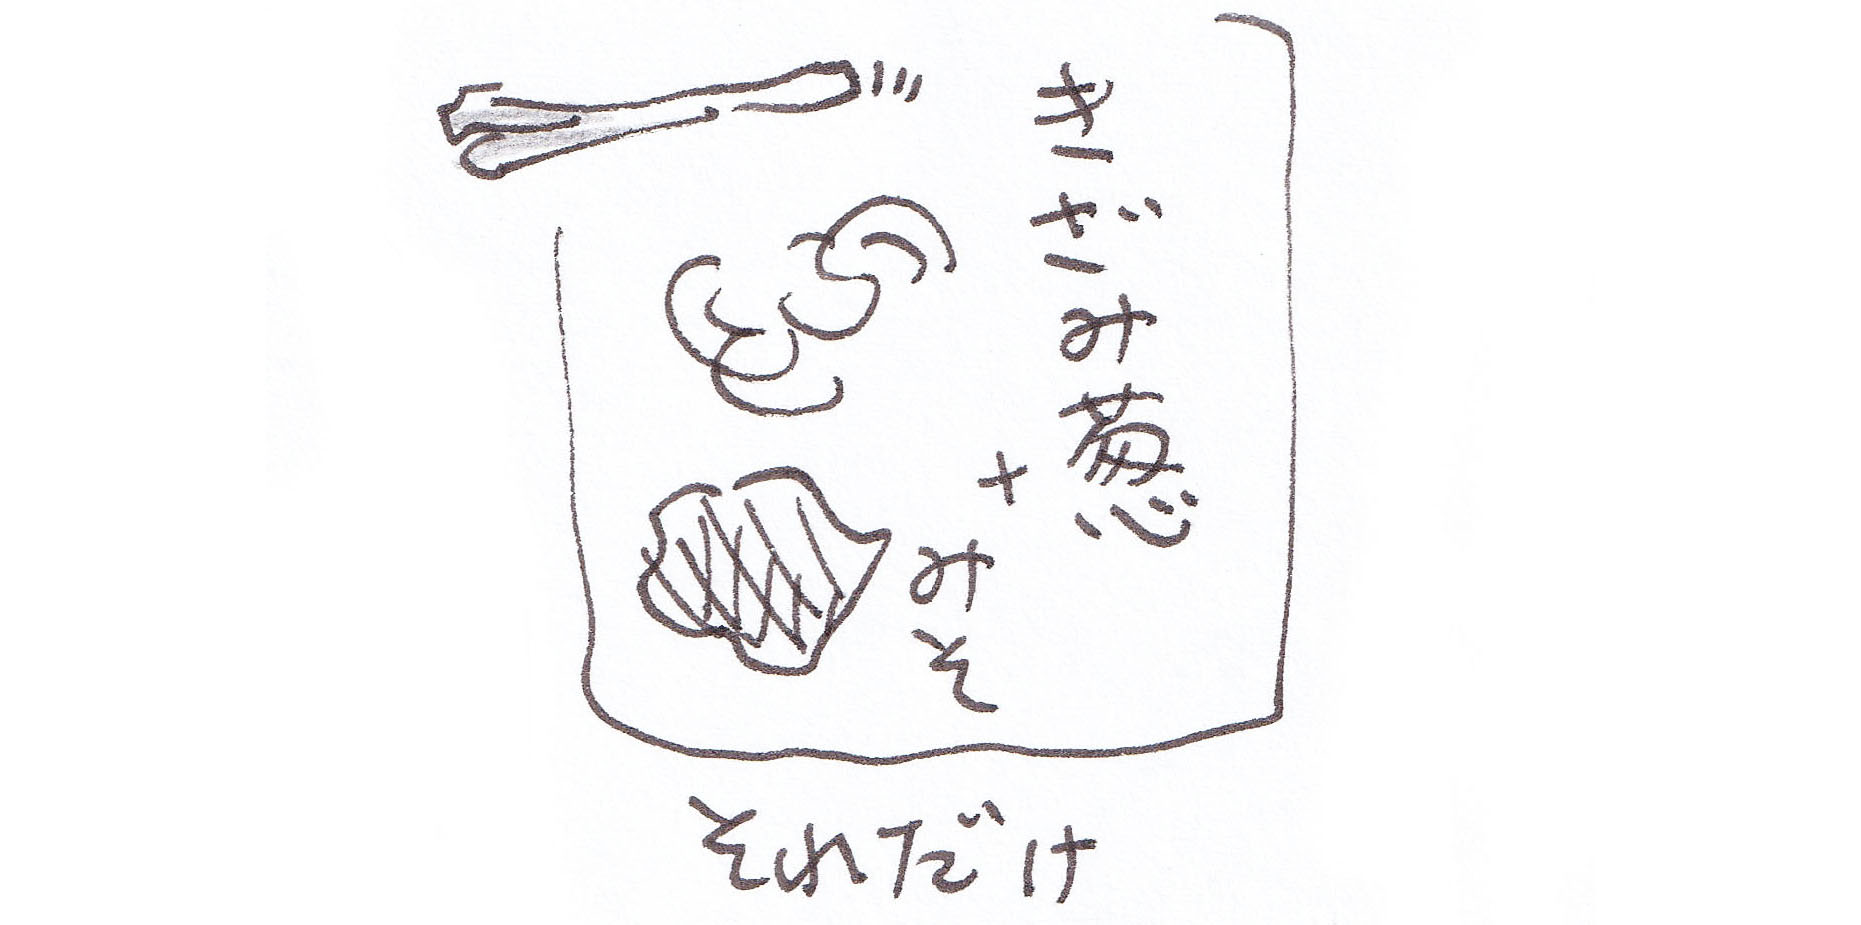 きざみ葱
+
みそ
それだけ